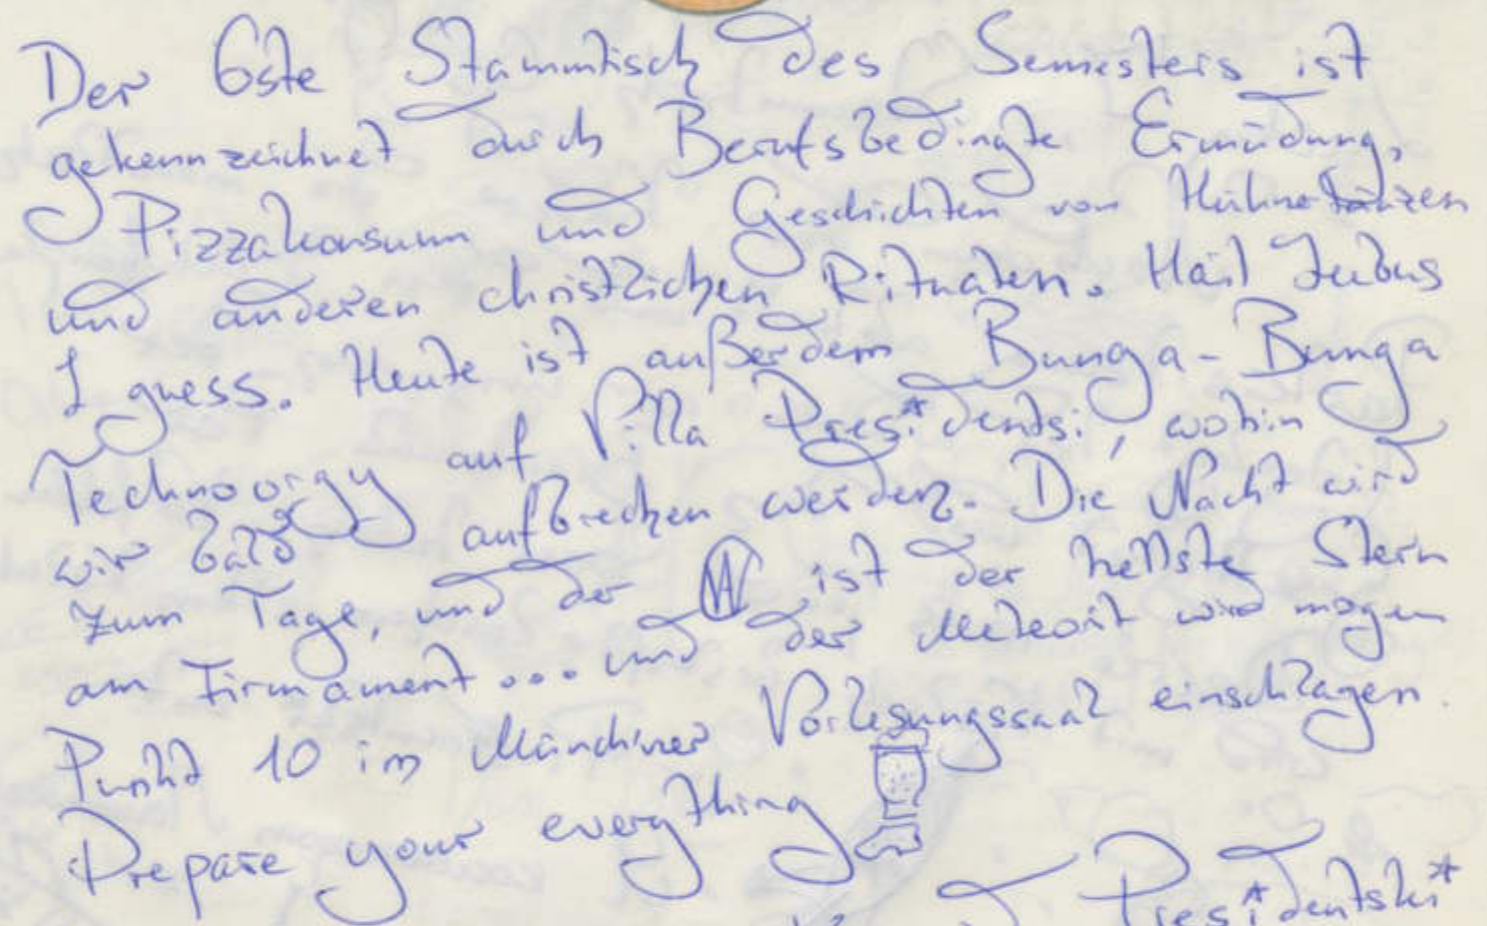 Der 6ste Stammtisch des Semesters ist
gekennzeichnet durch Berufsbedingte Ermüdung,
Pizzakonsum und Geschichten von Hühnertänzen
und anderen christlichen Ritualen. Hail Jeebus
I guess. Heute ist außerdem Bunga-Bunga
Technoorgy auf Villa Presi*dentsi, wohin
wir bald aufbrechen werden. Die Nacht wird
zum Tage, und der ist der hellste Stern
am Firmament... und der Meteorit wird morgen
Punkt 10 im Münchner Vorlesungssaal einschlagen.
Prepare your everything
Presi*dentski*